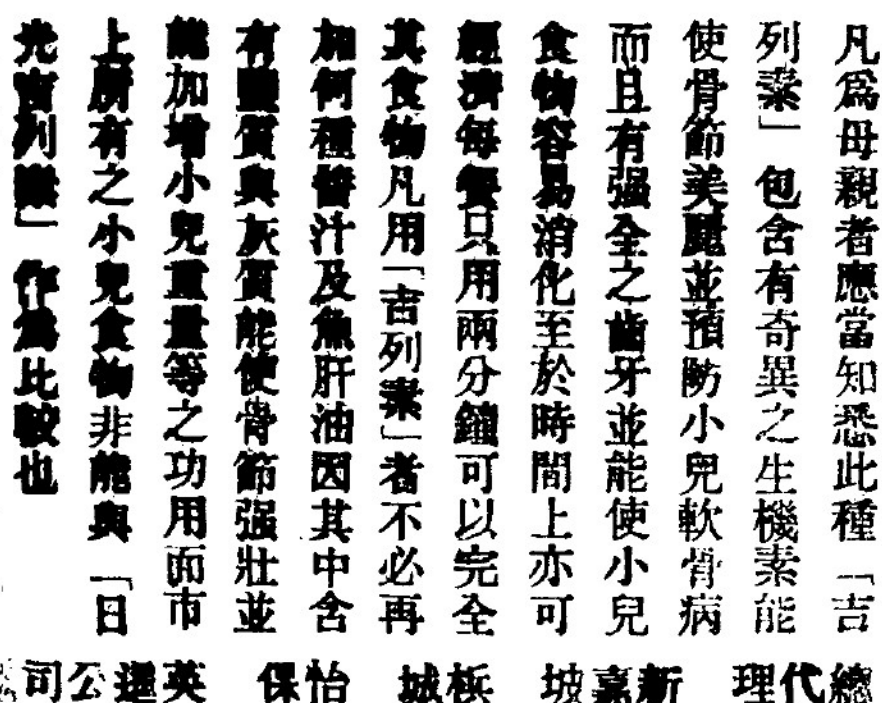 凡爲母親者應當知悉此種「吉
列素」包含有奇異之生機素能
使骨節美麗並預防小兒軟骨病
而且有强全之齒牙並能使小兒
食物容易消化至於時間上亦可
經濟每餐只用兩分鐘可以完全
其食物凡用「吉列素」者不必再
加何種醬汁及魚肝油因其中含
有鹽質與灰質能使骨節强壯並
能加增小兒重量等之功用面市
上所有之小兒食物非能與「日
光吉列素」作爲比較也
總代理 新嘉坡 檳城 怡保 英 公司